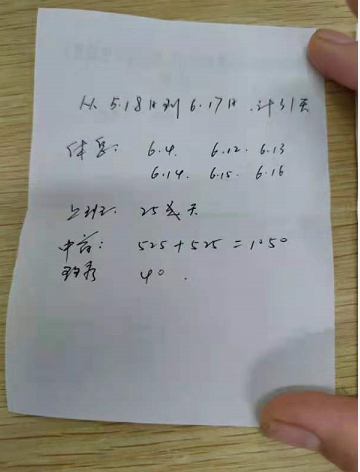 从 5.18日到 6.17日.计31天
休息: 6.4. 6.12. 6.13
6.14. 6.15. 6.16
上班: 25天
中音: 525+525=1050
40.